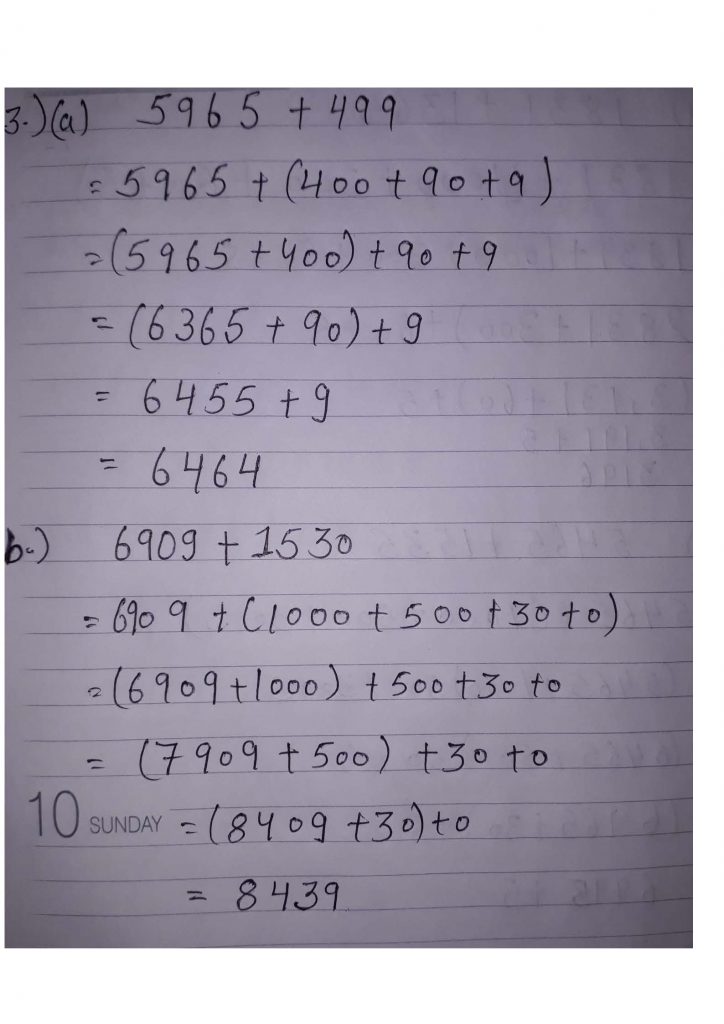 3.)(a) 5965 + 499
= 5965 + (400 + 90 + 9)
= (5965 + 400) + 90 + 9
= (6365 + 90) + 9
= 6455 + 9
= 6464
b.) 6909 + 1530
= 6909 + (1000 + 500 + 30 + 0)
= (6909 + 1000) + 500 + 30 + 0
= (7909 + 500) + 30 + 0
10 SUNDAY = (8409 + 30) + 0
= 8439